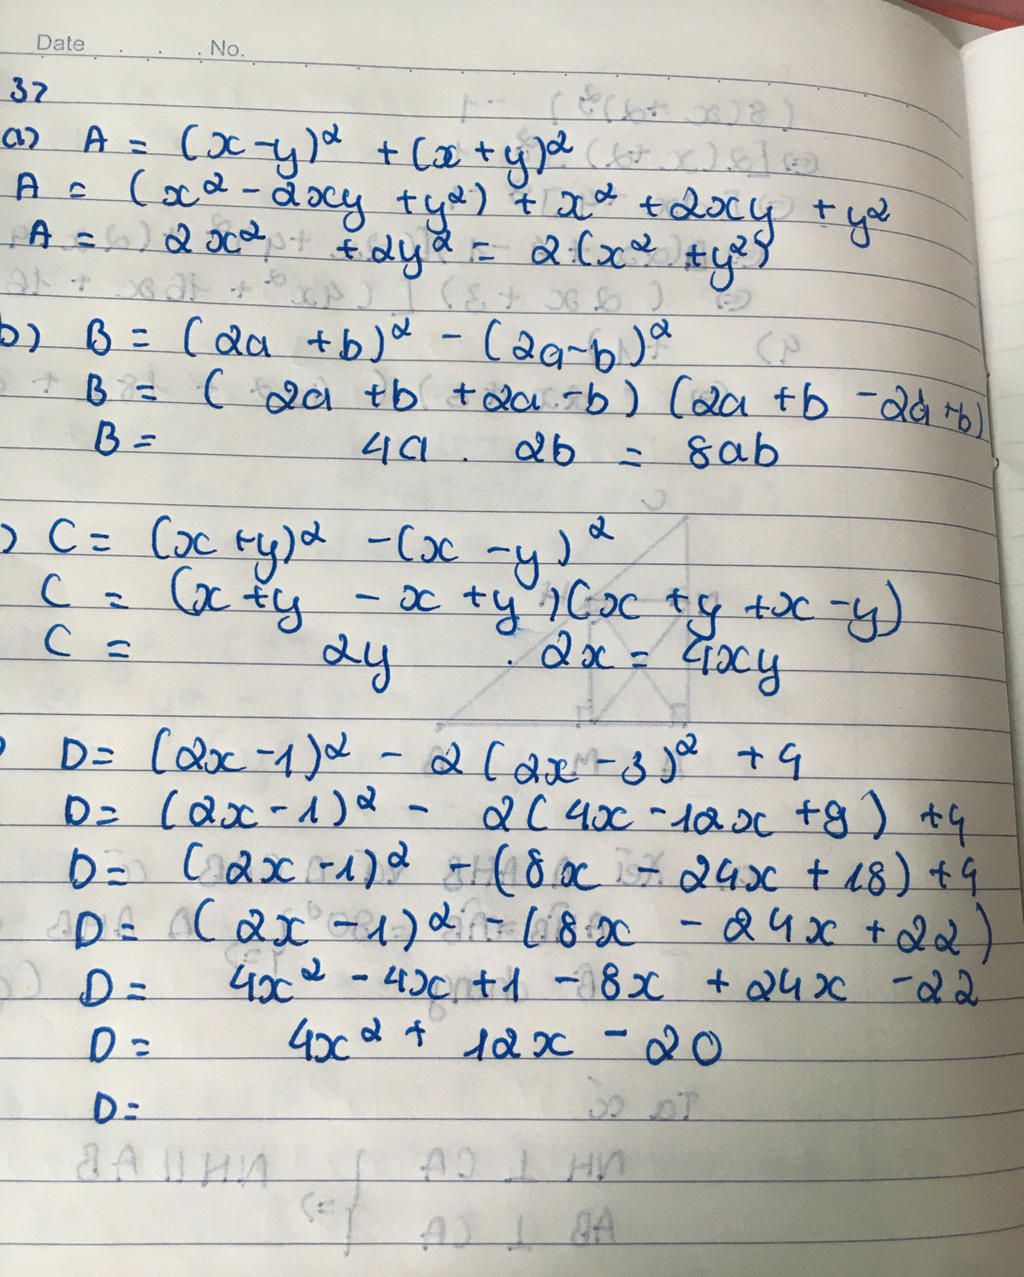 Date . . . No.
37
a) A = (x-y)² + (x+y)²
A = (x² - 2xy + y²) + x² + 2xy + y²
A = 2x² + 2y² = 2(x² + y²)
b) B = (2a + b)² - (2a-b)²
B = (2a + b + 2a - b) (2a + b - 2a + b)
B = 4a . 2b = 8ab
) C = (x+y)² - (x - y)²
C = (x+y - x + y) (x + y + x - y)
C = 2y . 2x = 4xy
D = (2x - 1)² - 2 (2x - 3)² + 4
D = (2x - 1)² - 2(4x - 12x + 9) + 4
D = (2x - 1)² - (8x - 24x + 18) + 4
D = (2x - 1)² - (8x - 24x + 22)
D = 4x² - 4x + 1 - 8x + 24x - 22
D = 4x² + 12x - 20
D =